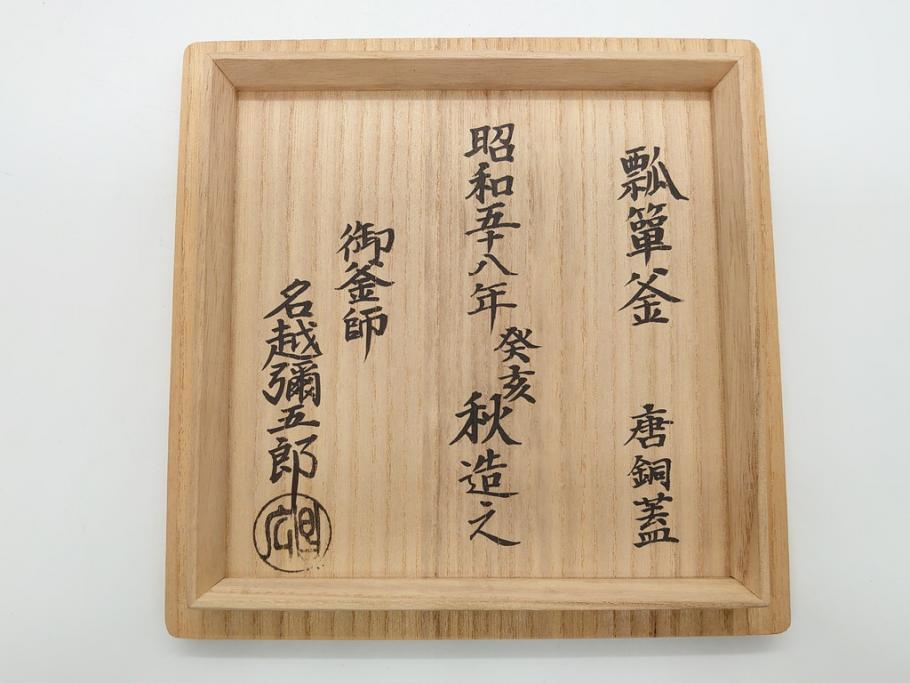 瓢簞釜 唐銅蓋
昭和五十八年癸亥秋造之
御釜師
名越彌五郎